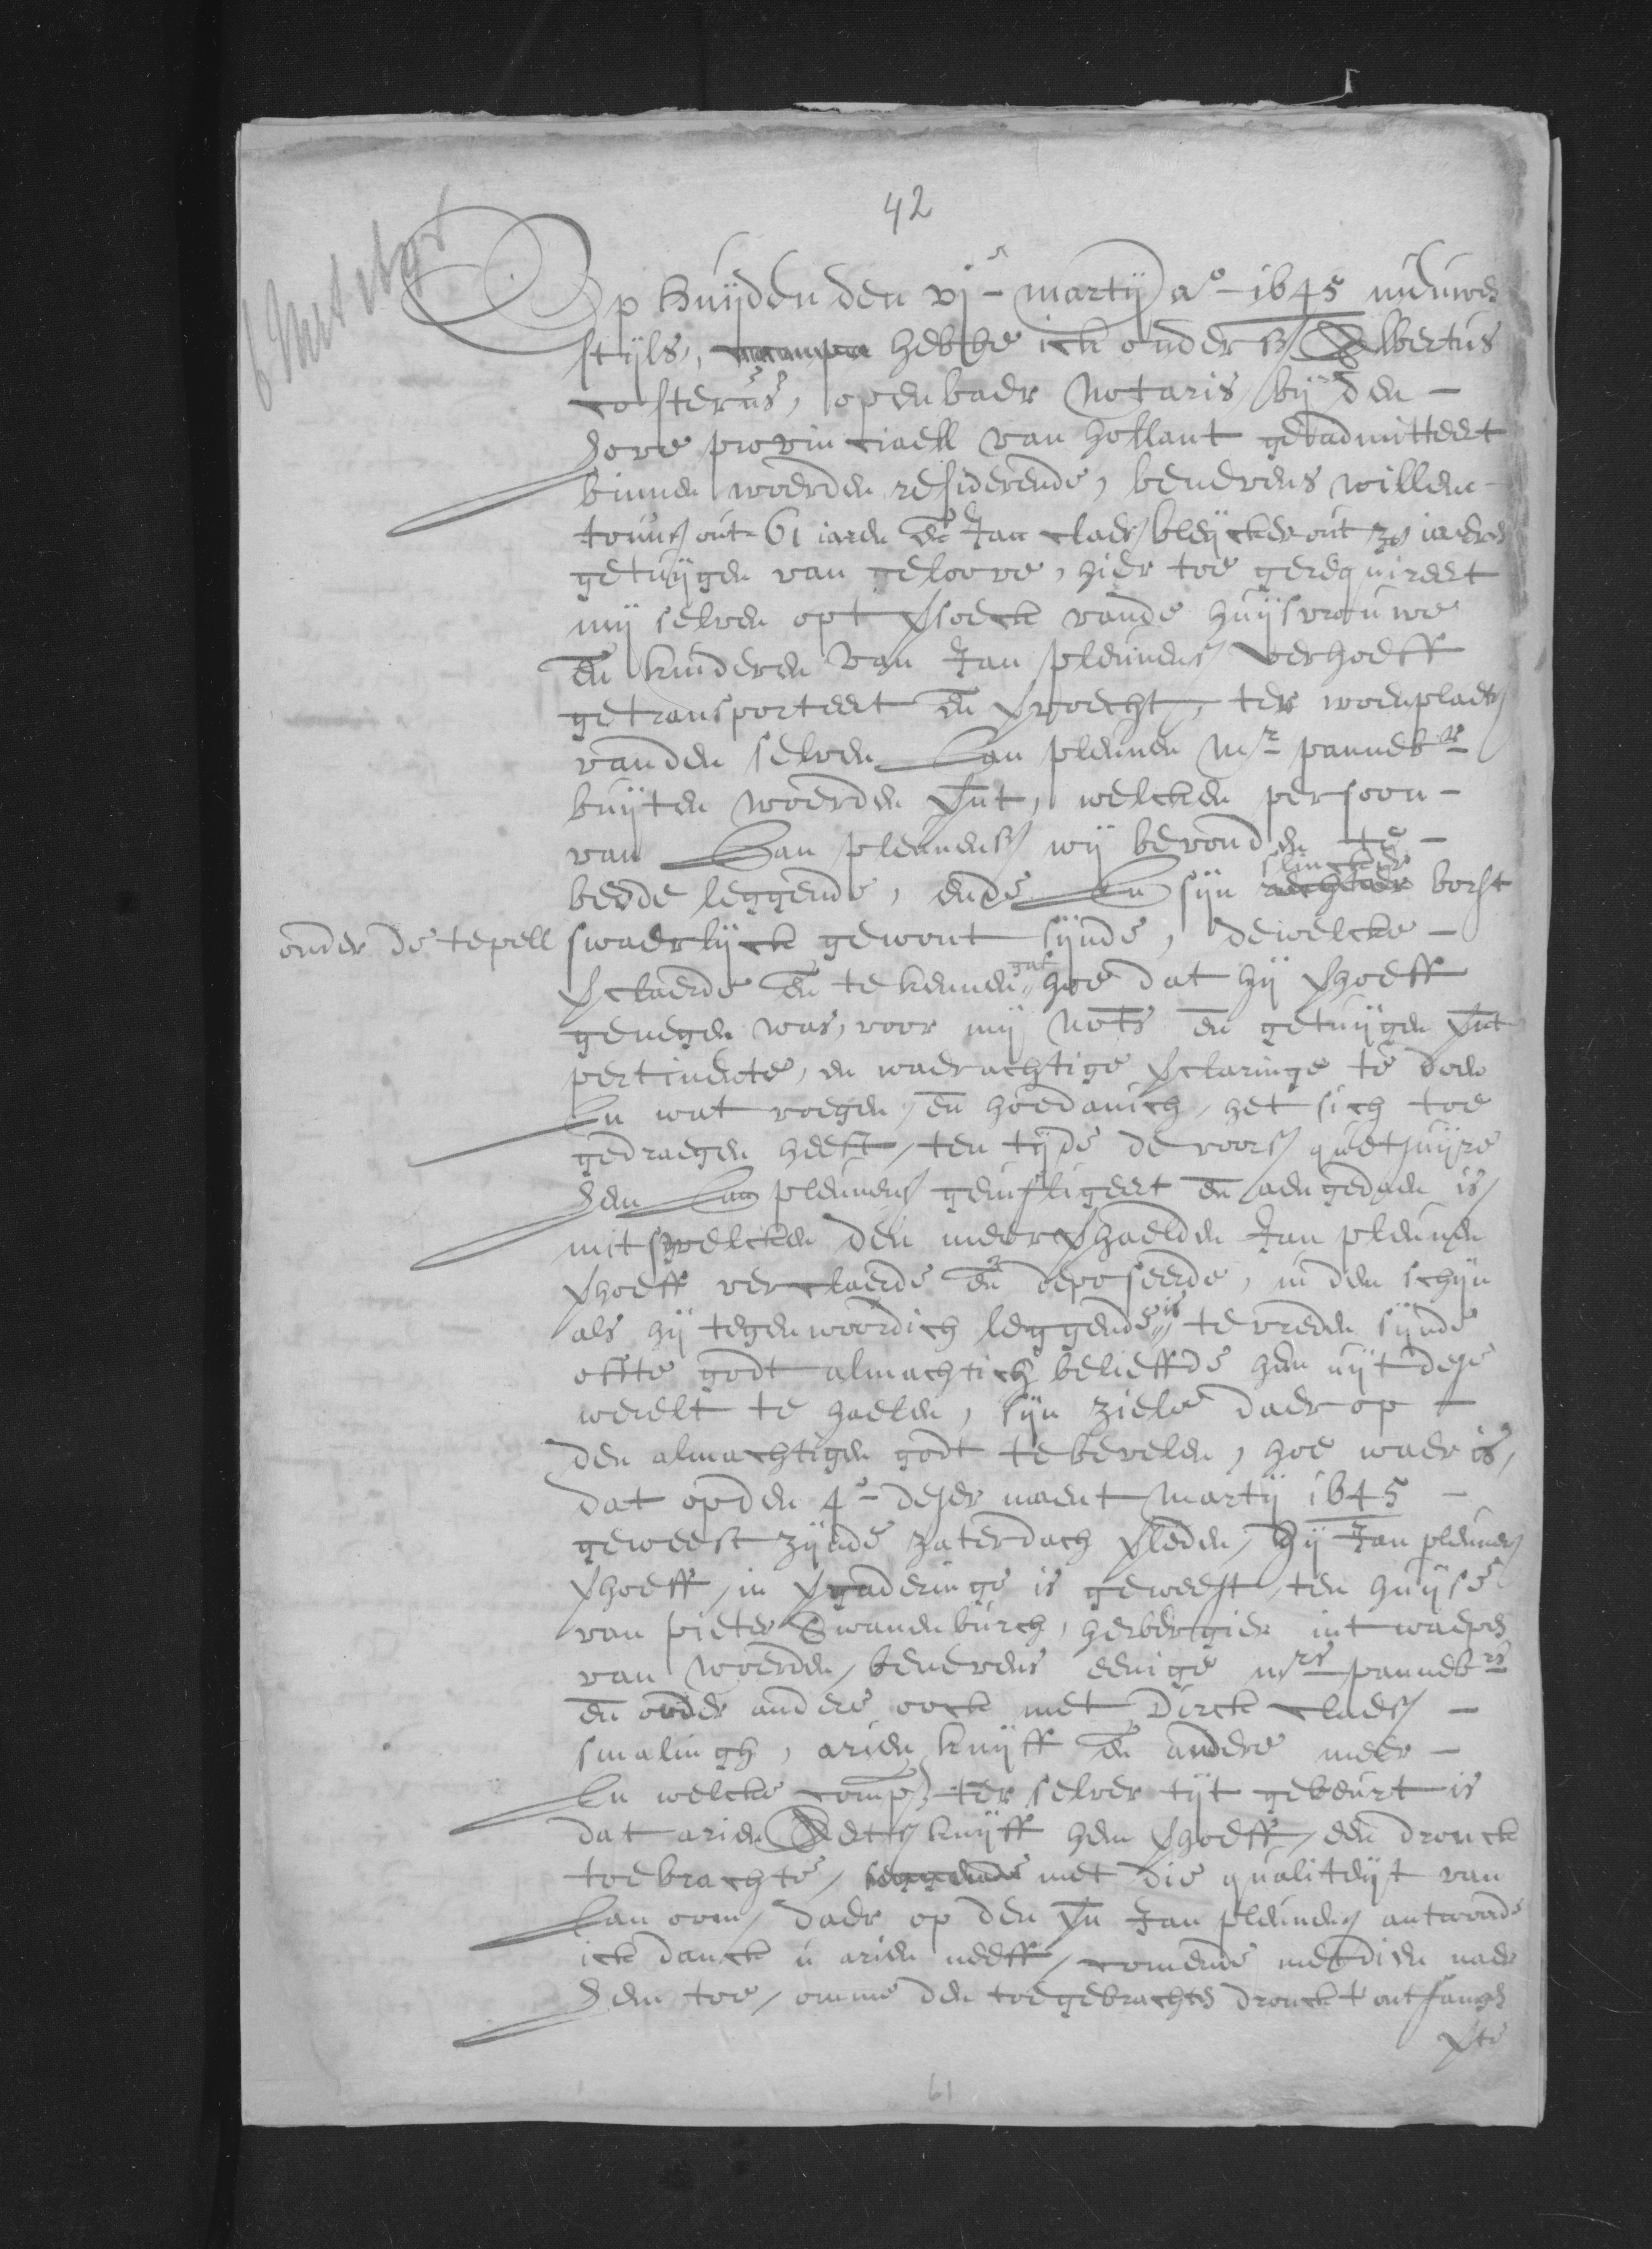 42
Op huijden den vj - martij aº - 1645 nieuwen
stijls, hebbe ick onders Albertus
costerus, openbaer Notaris bij den -
hove provinciaell van hollant geadmitteert
binnen woerden residerende, benevens willem
out 61 iaren en Jan claes bleijcker out iaeren
getuijgen van geloove, hier toe gerequireert
mij selven opt vsoeck vande huijsvrouwe
en kinderen van Jan pleunens verhoeff
getransporteert en vvoecht, ter woenplaets
vanden selven Jan pleunen mr panneb
buijten woerden vnt, welcken persoon -
van Jan pleunens wij bevonden te -
bedde leggende, ende In sijn rechter slincker borst
onder de tepell swaerlijck gewont sijnde, dewelcke -
vclaerde en te kennen gaf hoe dat hij vhoeff
genegen was, voor mij nots en getuijgen vnt
pertinente, en waerachtige vclaringe te doen
In wat voegen, en hoedanich, het sich toe
gedraegen heeft, ten tijde de voors quetsuijre
hem Jan pleunens geinfligeert en aengedaen is,
mitswelcken den meervhaelden Jan pleunen
vhoeff verclaerde en deposeerde, in den schijn
als hij tegenwoordich leggende is te vreden sijnde
ofte godt almachtich belieffde hem uijt dese
werelt te haelen, sijn ziele daer op -
den almachtigen godt te bevelen, hoe waer is,
dat op den 4e - deser maent martij 1645 -
geweest zijnde zaterdach vleden, hij Jan pleunens
vhoeff, in vgaderinge is geweest, ten huijse
van pieter Swanenburch, herbergier int waepen
van woerden, benevens eenige mrs pannebrs
en onder andere oock met Dirck claes -
smalingh, arien knijff en andere meer -
In welcke comp ter selver tijt gebeurt is
dat arien knijff hem vhoeff, een dronck
toebrachte, seggende met die qualiteijt van
Jan oom, daer op den vn Jan pleunens antwoorde
ick danck u arien neeff, comende met dien naer
hem toe, omme den toegebrachten dronck t ontfangen
vte
61